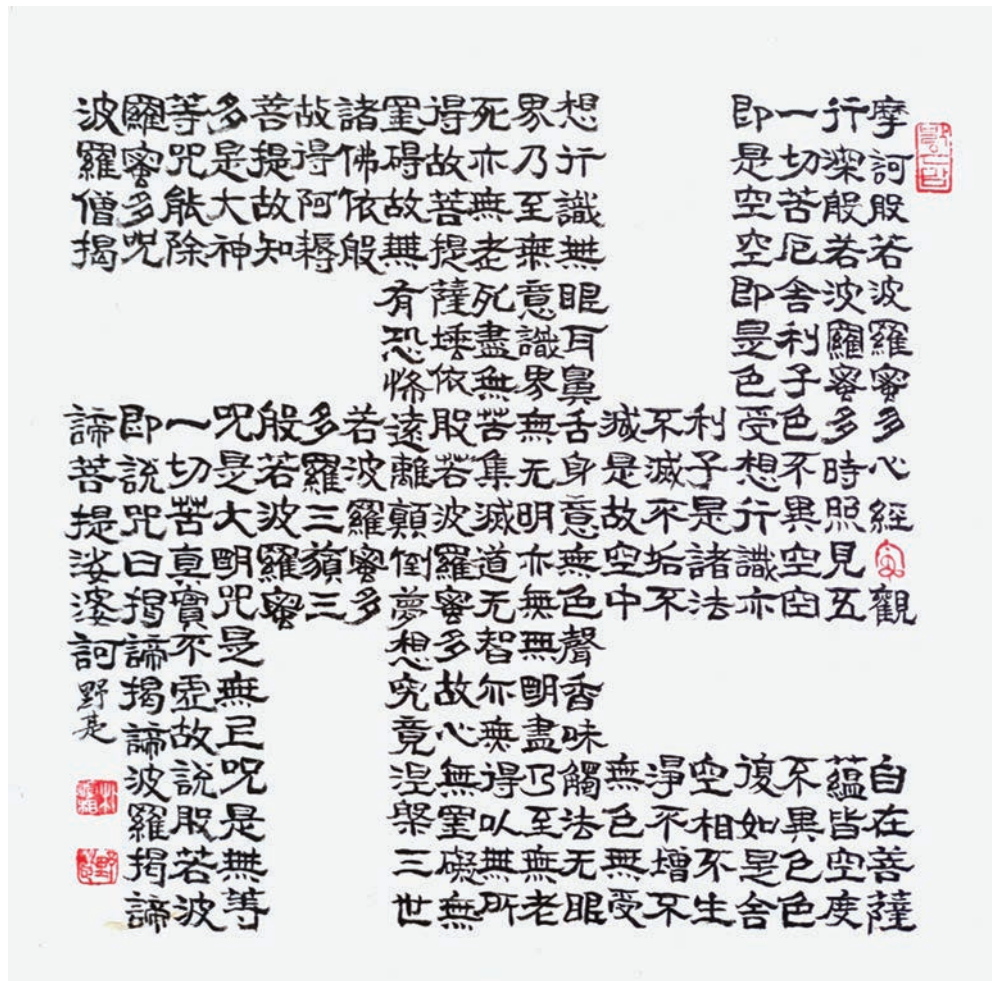 摩訶般若波羅蜜多心經觀自在菩薩
行深般若波羅蜜多時照見五蘊皆空度
一切苦厄舍利子色不異空空不異色色
即是空空即是色受想行識亦復如是舍
利子是諸法空相不生
不滅不垢不淨不增不
減是故空中無色無受
想行識無眼耳鼻舌身意無色聲香味觸法无眼
界乃至無意識界無无明亦無無明盡乃至無老
死亦無老死盡無苦集滅道无智亦無得以無所
得故菩提薩埵依般若波羅蜜多故心無罣礙無
罣碍故無有恐怖遠離顛倒夢想究竟涅槃三世
諸佛依般若波羅蜜多
故得阿耨多羅三藐三
菩提故知般若波羅蜜
多是大神咒是大明咒是無上咒是無等
等咒能除一切苦真實不虛故說般若波
羅蜜多咒即說咒曰揭諦揭諦波羅揭諦
波羅僧揭諦菩提娑婆訶